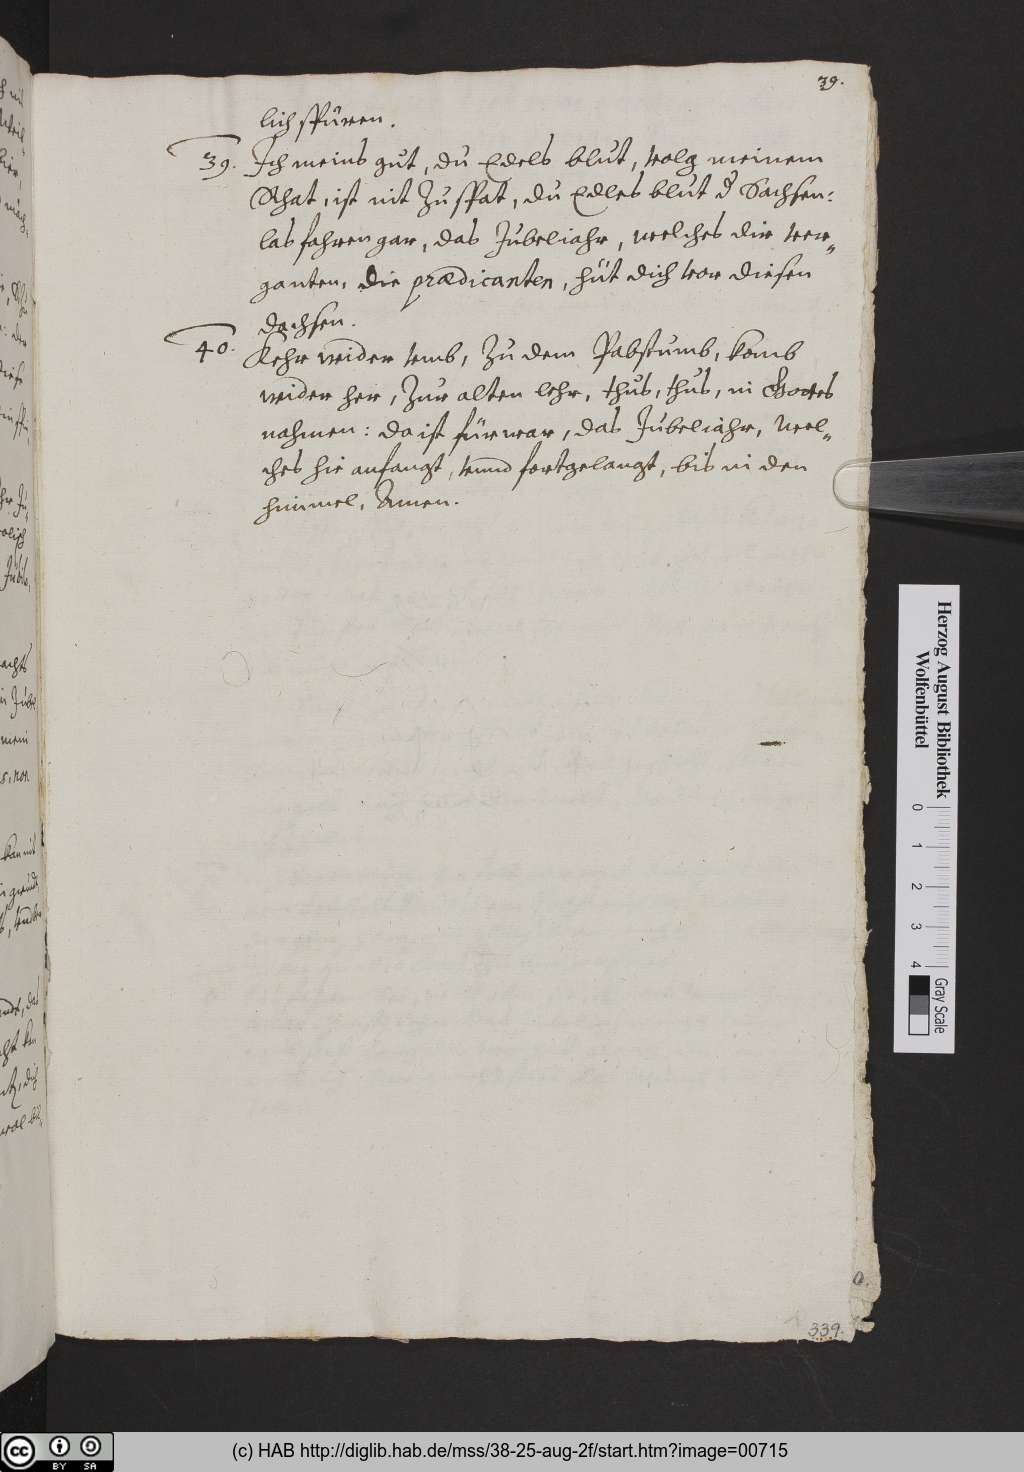 39.
lich spüren.
39. Ich meins gut, du Edels blut, volg meinem
Rhat, ist nit zu spat, du Edles blut d Sachsen:
las fahren gar, das Jubeliahr, welches dir ver„
ganten, die prædicanten, hüt dich vor diesen
dachsen.
40. Kehr wider vmb, zu dem Pabstumb, komb
wider her, zur alten lehr, thus, thus, in Gottes
nahmen: da ist fürwar, das Jubeliahr, wel„
ches hie anfangt, vnnd fortgelangt, bis in den
himmel, Amen.
339.
Herzog August Bibliothek
Wolfenbüttel
0 1 2 3 4
Gray Scale
cc BY SA
(c) HAB http://diglib.hab.de/mss/38-25-aug-2f/start.htm?image=00715